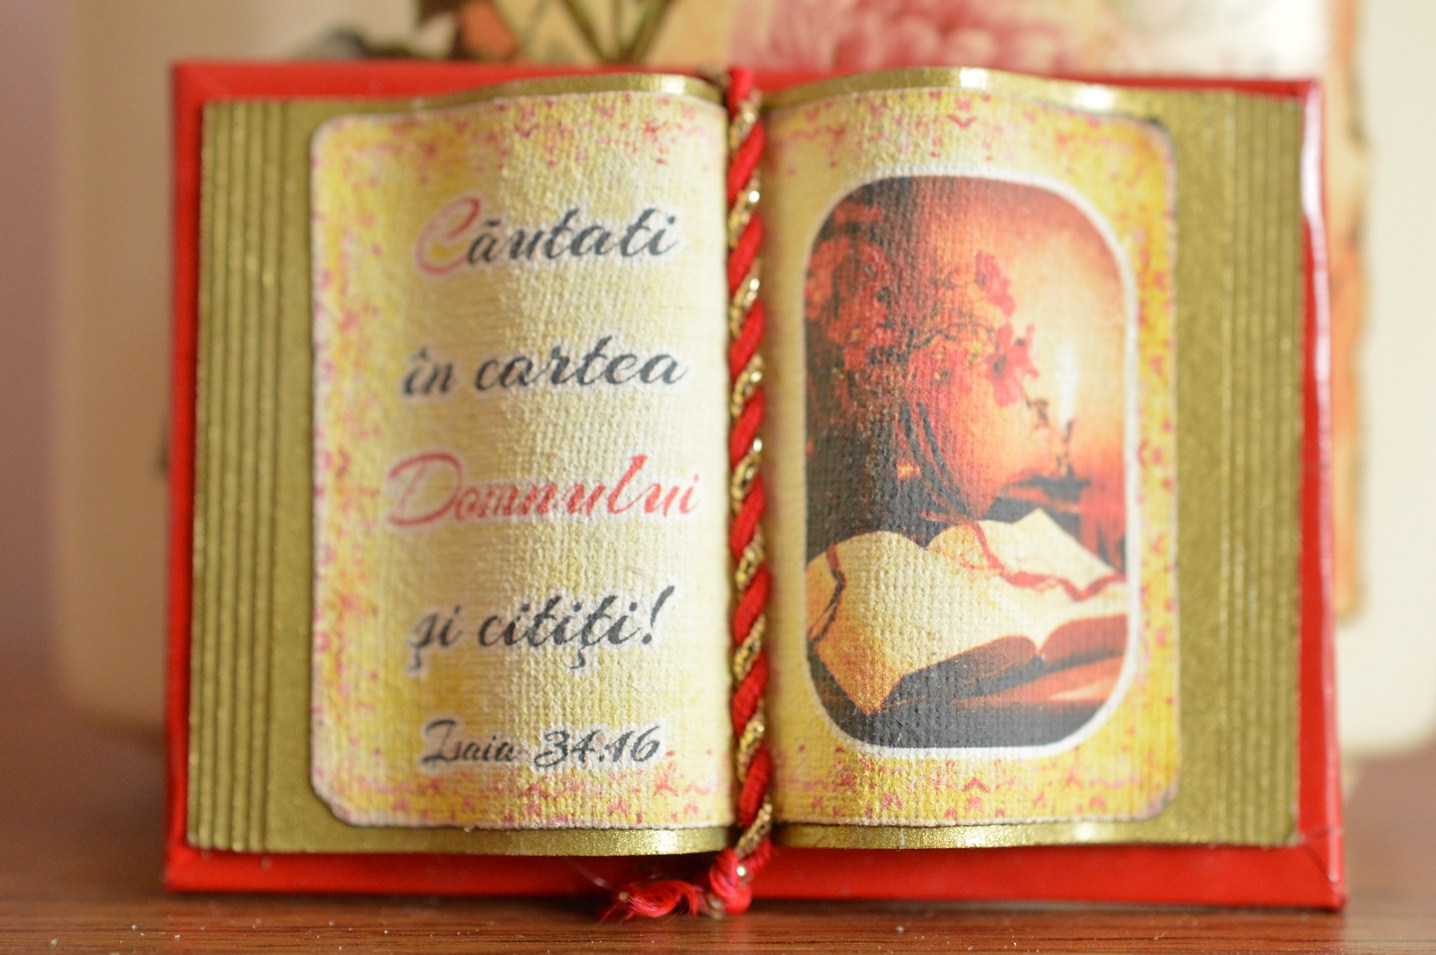 Căutati
în cartea
Domnului
şi citiţi!
Isaia 34.16